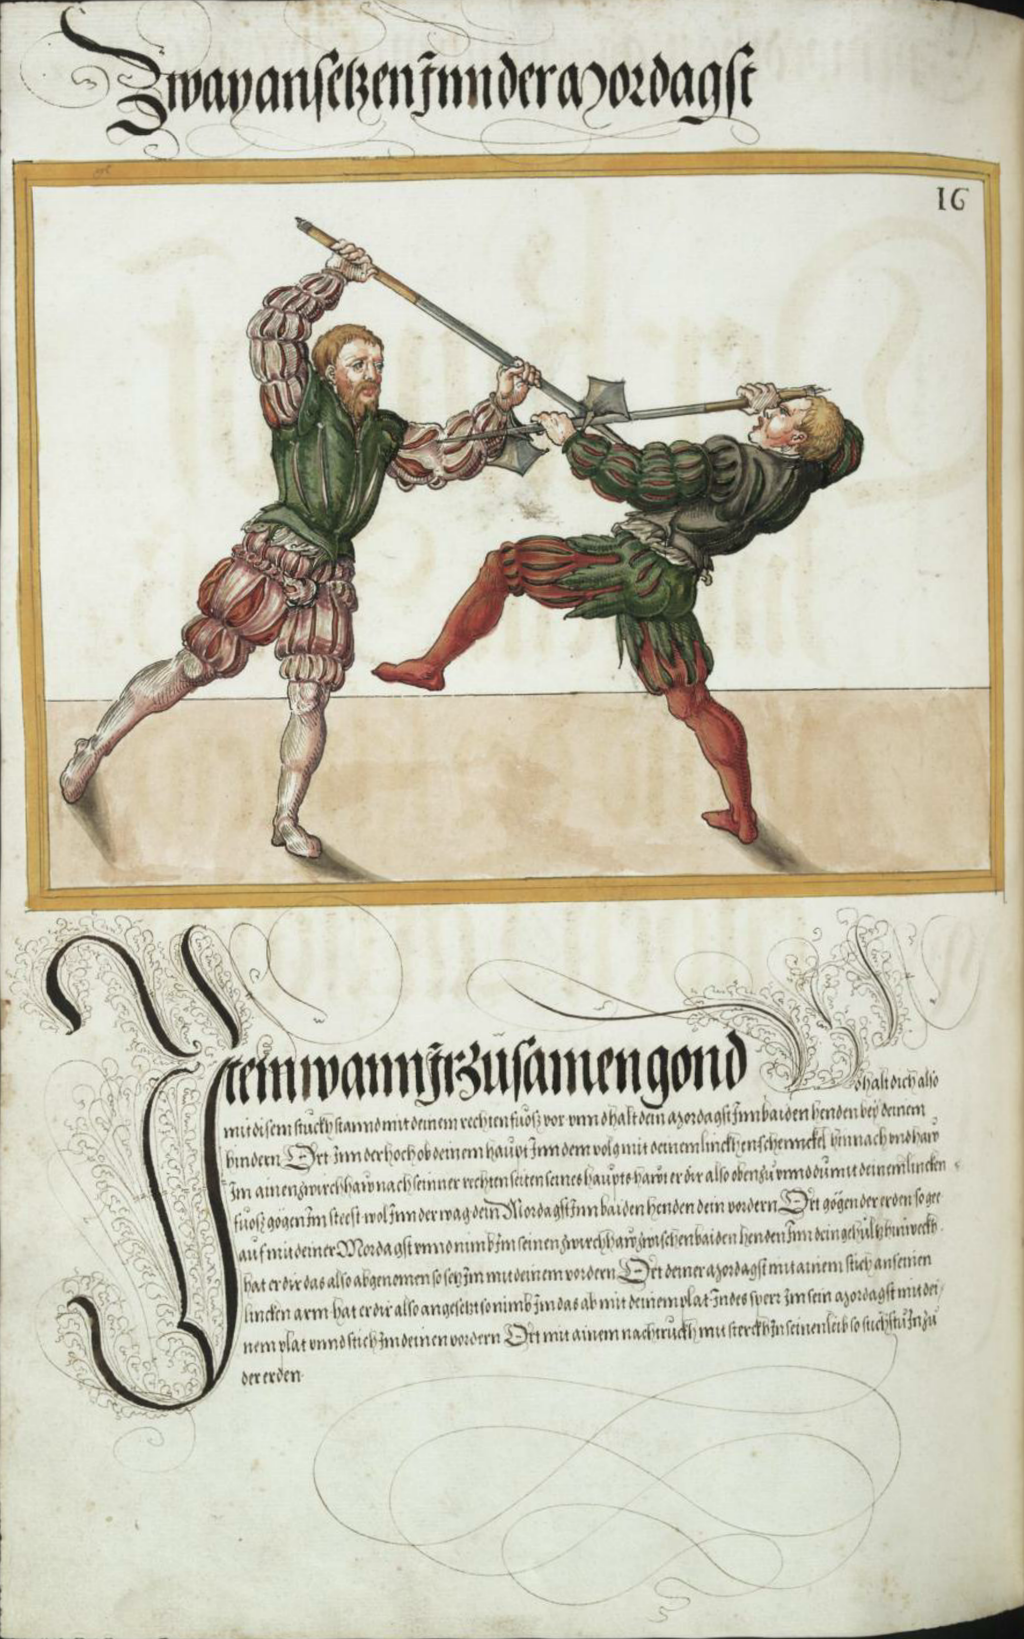 Zway ansetzen Jnn der Mordagst
16
Jtem wann Jr zůsamen gond
So halt dich also
mit disem stuckh stannd mit deinem rechten fuosz vor vnnd halt dein Mordagst Jnn baiden henden bey deinem
hindern Ort Jnn der hoch ob deinem haupt Jnn dem volg mit deinem linckhen schennckel hinnach vnd haw
Jm ainen zwirchhaw nach seinner rechten seiten seines haupts hawt er dir also oben zů vnnd du mit deinem lincken
fuosz gögen Jm steest wol Jnn der wag dein Mordagst Jnn baiden henden dein vordern Ort gögen der erden so gee
auf mit deiner Mordagst vnnd nimb Jm seinen zwirchhaw zwischen baiden henden Jnn dein gehültz hinweckh
hat er dir das also abgenomen so setz Jm mit deinem vordern Ort deiner Mordagst mit ainem stich an seinen
lincken arm hat er dir also angesetzt so nimb Jm das ab mit deinem plat Jndes sperr Jm sein Mordagst mit dei
nem plat vnnd stich Jm deinen vordern Ort mit ainem nachtruckh mit sterckh Jn seinen leib so stichstu Jn zů
der erden